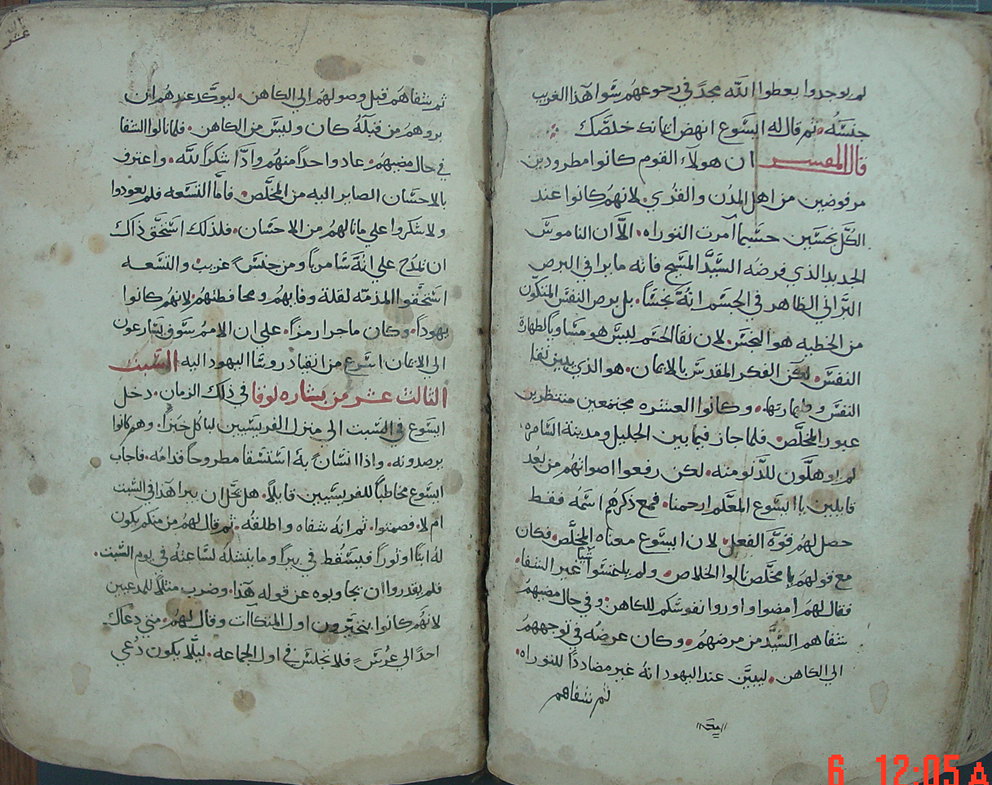 لم يوجدوا يعطوا الله مجدًا في رجوعهم سوا هذا الغريب
جنسه. ثم قال له ايسوع انهض ايمانك خلصك
قال المفسر ان هولاء القوم كانوا مطرودين
مرفوضين من اهل المدن والقري. لانهم كانوا عند
الكل نجسين حسبما آمرت التوراه. الآ ان الناموس
الجديد الذي فرضه السيد المسيح فانه ما يرا في البرص
التراني الظاهر في الجسم انه نجسًا. بل برص النفس المتكون
من الخطيه هو النجس. لان نقا الجسم ليس هو مساويًا لطهارة
النفس. لكن الفكر المقدس بالايمان. هو الذي يبين نقا
النفس وطهارتها. وكانوا العشره مجتمعين منتظرين
عبور المخلص. فلما جاز فيما بين الجليل ومدينة السامره.
لم يوهلون للدنو منه. لكن رفعوا اصواتهم من بعد
قايلين يا ايسوع المعلم ارحمنا. فمع ذكرهم اسمه فقط
حصل لهم قوة الفعل. لان ايسوع معناه المخلص. فكان
مع قولهم يا مخلص نالوا الخلاص. ولم يلتمسوا شيًا غير الشفا.
فقال لهم امضوا واوروا نفوسكم للكاهن. وفي حال مضيهم
شفاهم السيد من مرضهم. وكان غرضه في توجههم
الي الكاهن. ليبين عند اليهود انه غير مضاددًا للتوراه.
ثم شفاهم
عشر
ثم شفاهم قبل وصولهم الي الكاهن. ليوكد عندهم ان
بروهم من قبله كان وليس من الكاهن. فلما نالوا الشفا
في حال مضيهم. عاد واحدًا منهم وادّا شكرًا لله. واعترف
بالاحسان الصاير اليه من المخلص. فاما التسعه فلم يعودوا
ولا شكروا علي ما نالهم من الاحسان. فلذلك استحق ذاك
ان يمدح علي انه سامريًا ومن جنس غريب. والتسعه
استحقوا المذمه لقلة وفايهم ومحافظتهم. لانهم كانوا
يهودًا. وكان ماجرا رمزًا. علي ان الامم سوف يسارعون
الي الايمان اسرع من انقياد روسا اليهود اليه السبت
الثالث عشر من بشاره لوقا في ذلك الزمان. دخل
ايسوع في السبت الي منزل الفريسيين لياكل خبزًا. وهم كانوا
يرصدونه. واذا انسان به استسقا مطروحًا قدامه. فاجاب
ايسوع مخاطبًا للفريسيين قايلًا. هل يحل ان يبرا هذا في السبت
ام لا. فصمتوا. ثم انه شفاه واطلقه. ثم قال لهم من منكم يكون
له ابنًا او ثورًا فيسقط في بيرًا وما ينشله لساعته في يوم السبت.
فلم يقدروا ان يجاوبوه عن قوله هذا. وضرب مثلًا للمدعيين
لانهم كانوا يتخيرون اول المتكاات وقال لهم. متي دعاك
احد الي عرس فلا تجلس في اول الجماعه. ليلا يكون دُعي
6 12:05 A